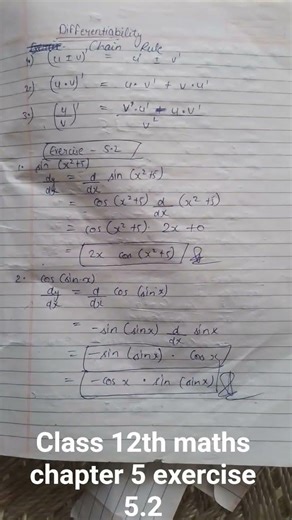 Differentiability
Chain Rule
1) (u ± v)' = u' ± v'
2) (u·v)' = u·v' + v·u'
3) (u/v)' = v·u' - u·v' / v²
Exercise - 5.2
1. sin (x²+5)
dy/dx = d/dx sin (x²+5)
= cos (x²+5) d/dx (x²+5)
= cos (x²+5) · 2x + 0
= 2x cos (x²+5)
2. cos (sin x)
dy/dx = d/dx cos (sin x)
= -sin (sin x) d/dx sin x
= -sin (sin x) · cos x
= -cos x · sin (sin x)
Class 12th maths
chapter 5 exercise
5.2